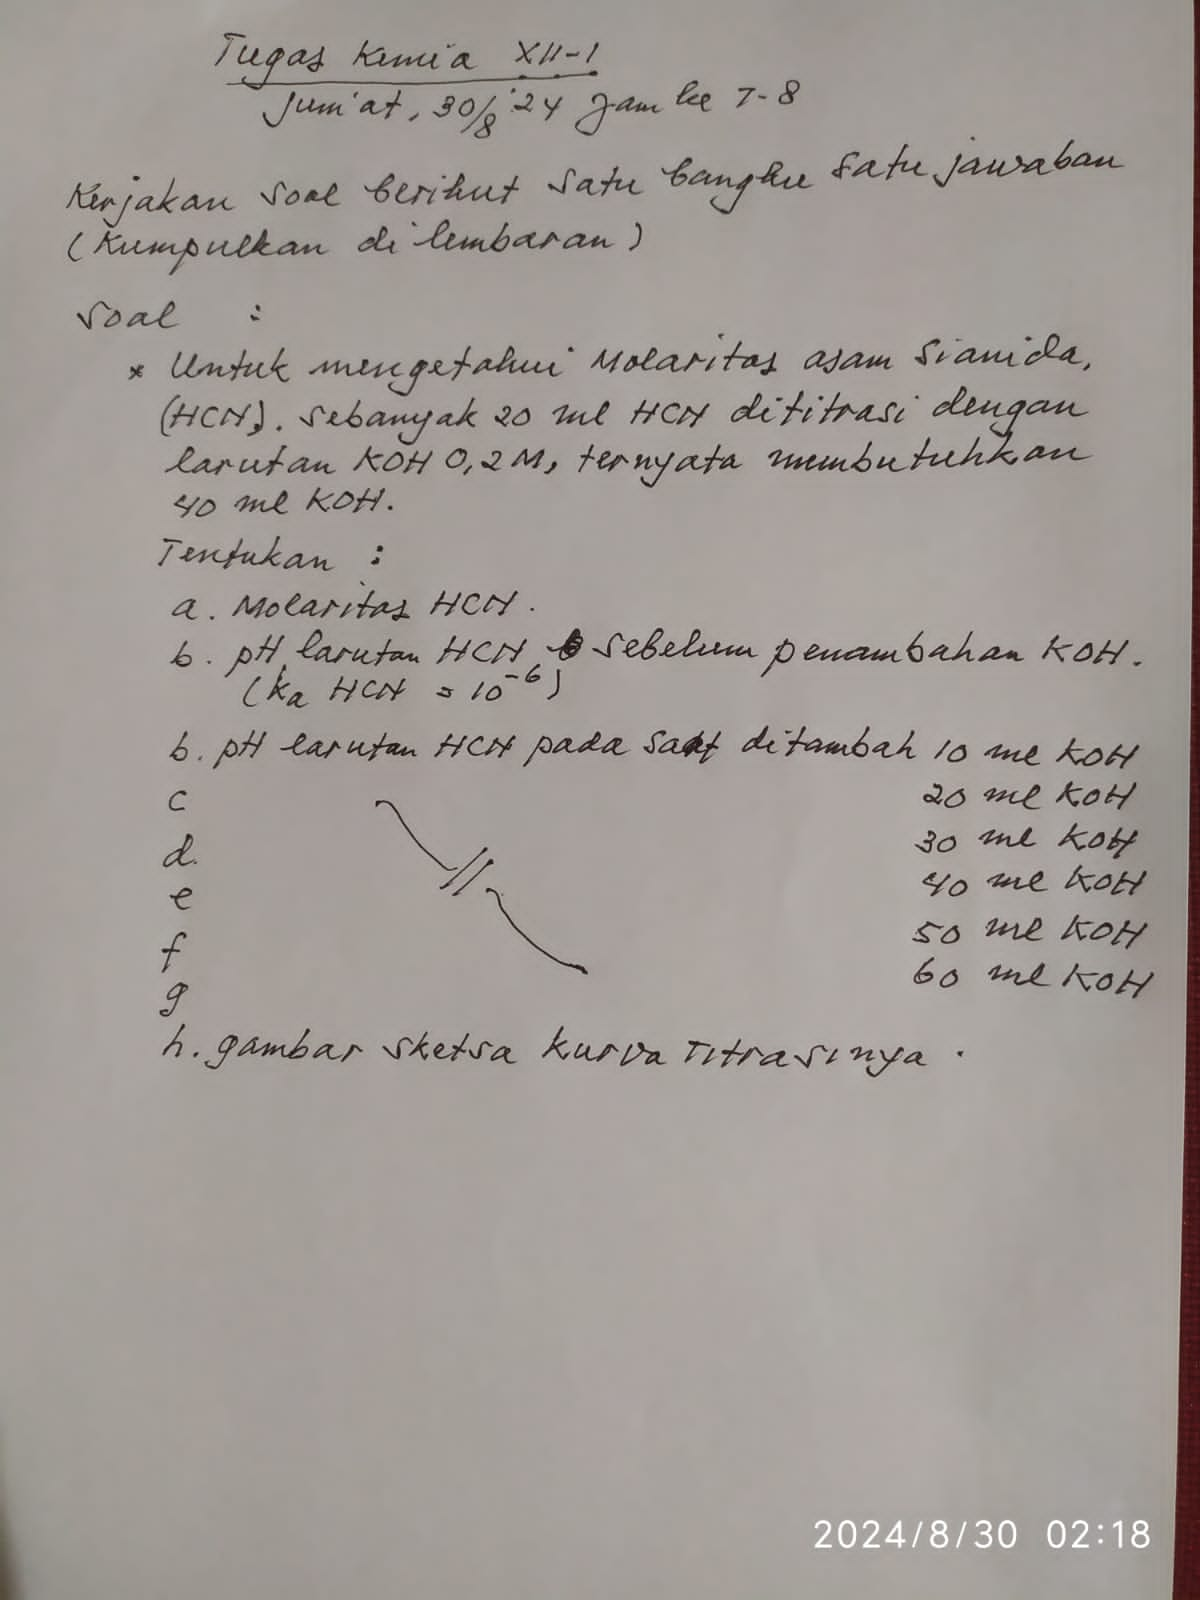 Tugas Kimia XII-1
Jum'at, 30/8 '24 Jam ke 7-8
Kerjakan soal berikut satu bangku satu jawaban
(Kumpulkan di lembaran)
Soal :
* Untuk mengetahui Molaritas asam Sianida,
(HCN). Sebanyak 20 ml HCN dititrasi dengan
larutan KOH 0,2 M, ternyata membutuhkan
40 ml KOH.
Tentukan :
a. Molaritas HCN.
b. pH larutan HCN sebelum penambahan KOH.
(Ka HCN = 10⁻⁶)
b. pH larutan HCN pada saat ditambah 10 ml KOH
c 20 ml KOH
d. 30 ml KOH
e 40 ml KOH
f 50 ml KOH
g 60 ml KOH
h. gambar sketsa kurva Titrasinya.
2024/8/30 02:18